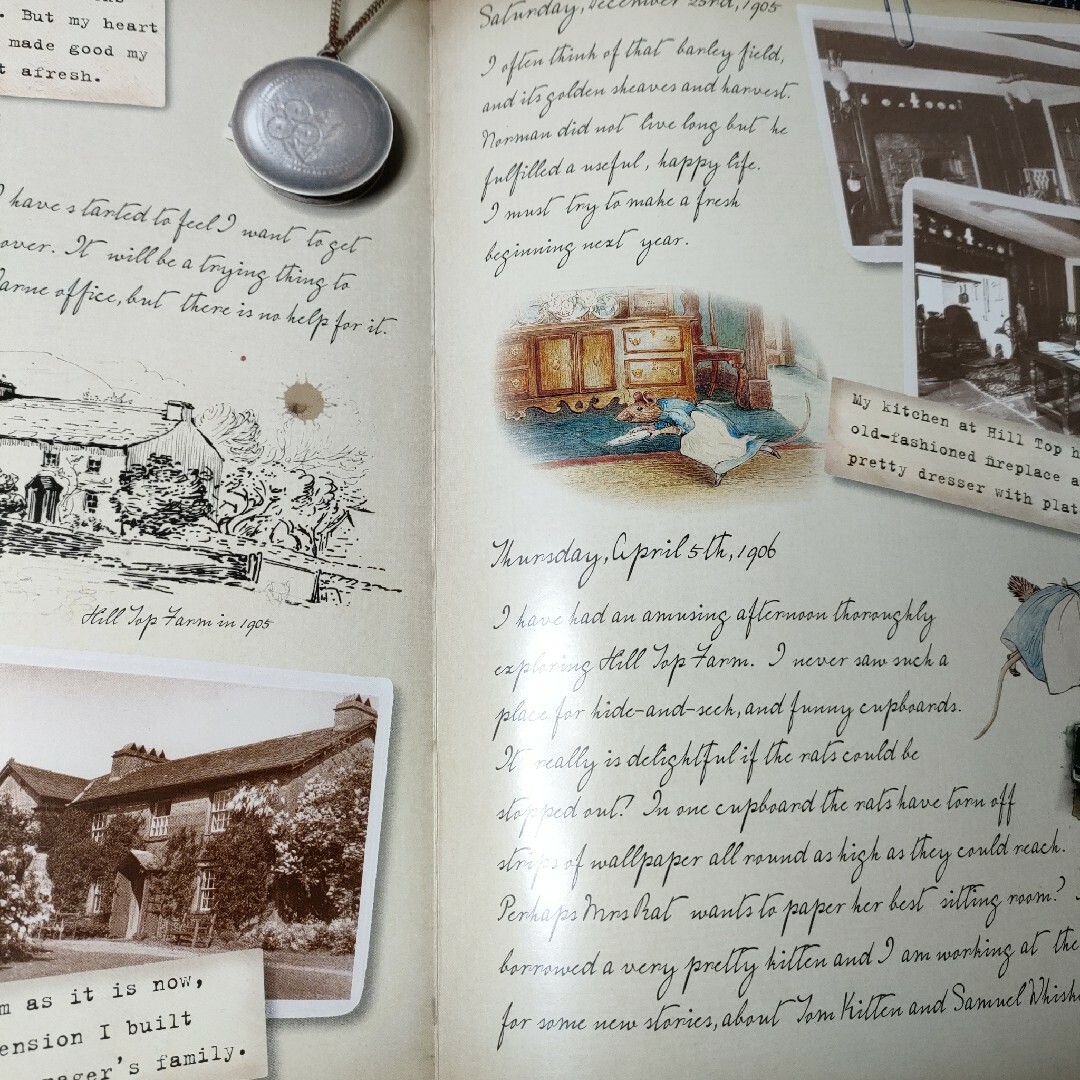 . But my heart
made good my
t afresh.
I have started to feel I want to get
over. It will be a trying thing to
Warne office, but there is no help for it.
Hill Top Farm in 1905
m as it is now,
ension I built
nager's family.
Saturday, December 23rd, 1905
I often think of that barley field,
and its golden sheaves and harvest.
Norman did not live long but he
fulfilled a useful, happy life.
I must try to make a fresh
beginning next year.
My kitchen at Hill Top h
old-fashioned fireplace a
pretty dresser with plat
Thursday, April 5th, 1906
I have had an amusing afternoon thoroughly
exploring Hill Top Farm. I never saw such a
place for hide-and-seek, and funny cupboards.
It really is delightful if the rats could be
stopped out! In one cupboard the rats have torn off
strips of wallpaper all round as high as they could reach.
Perhaps Mrs Rat wants to paper her best sitting room?
borrowed a very pretty kitten and I am working at the
for some new stories, about Tom Kitten and Samuel Whisk